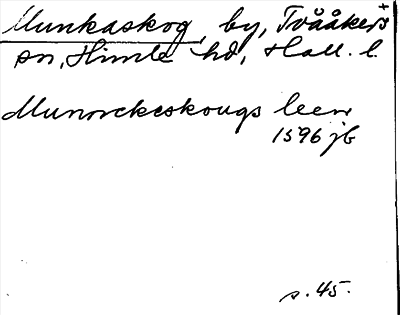 Munkaskog, by, Tvååkers +
sn, Himle hd, Hall. l.
Munnckeskougs leen
1596 jb
s. 45.